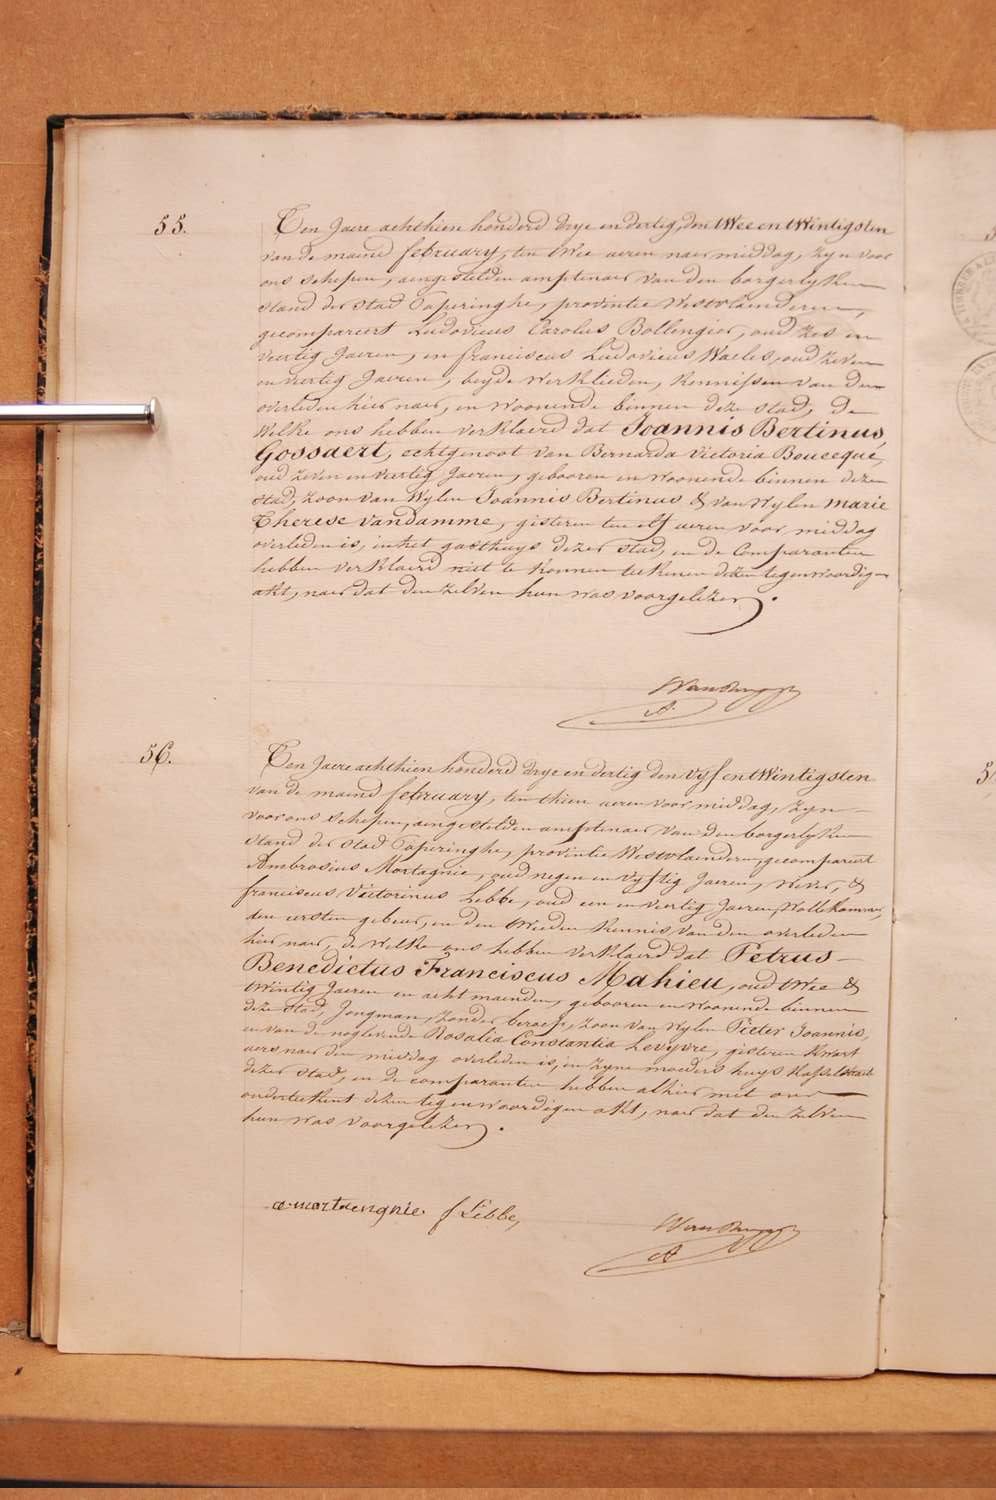 55.
Ten Jaere achthien honderd drye en dertig, den twee en twintigsten
van de maend february, ten twee ueren naer middag, zyn voor
ons schepen, aengestelden amptenaer van den borgerlyken
stand der stad Poperinghe, provintie Westvlaenderen,
gecompareert Ludovicus Carolus Bollengier, oud zes en
veertig Jaeren, en franciscus Ludovicus Waeles, oud zeven
en veertig Jaeren, beyde werklieden, kennissen van den
overleden hier naer, en woonende binnen deze stad, de
welke ons hebben verklaerd dat Joannis Bertinus
Gossaert, echtgenoot van Bernarda Victoria Boucequé,
oud zeven en veertig Jaeren, gebooren en woonende binnen deze
stad, zoon van wylen Joannis Bertinus & van wylen marie
Therese vandamme, gisteren ten elf ueren voor middag
overleden is, in het gasthuys dezer stad, en de Comparanten
hebben verklaerd niet te konnen teekenen dezen tegenwoordigen
akt, naer dat den zelven hun was voorgelezen.
56.
Ten Jaere achthien honderd drye en dertig den vyf en twintigsten
van de maend february, ten thien ueren voor middag, zyn
voor ons schepen, aengestelden amptenaer van den borgerlyken
stand der stad Poperinghe, provintie Westvlaenderen, gecompareert
Ambrosius Mortagnie, oud negen en vyftig Jaeren, wever, &
franciscus Victorinus Lebbe, oud een en veertig Jaeren, Wollekammer,
den eersten gebeur, en den tweeden kennis van den overleden
hier naer, de welke ons hebben verklaerd dat Petrus
Benedictus Franciscus Mahieu, oud twee &
twintig Jaeren en acht maenden, gebooren en woonende binnen
deze stad, Jongman, zonder beroep, zoon van wylen Pieter Joannis,
en van de noglevende Rosalia Constantia Levyvre, gisteren kwart
uers naer den middag overleden is, in zyne moeders huys
dezer stad, en de comparanten hebben alhier met ons
onderteekent dezen tegenwoordigen akt, naer dat den zelven
hun was voorgelezen.
a mortaengnie f Lebbe